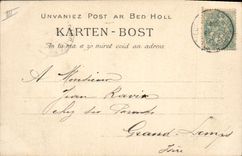 Unvaniez Post ar Bed Holl
KARTEN-BOST
An tu-ma a zo miret evid an adres
A Monsieur
Jean Ravix
chez ses Parents
Grand-Lemps
Isère